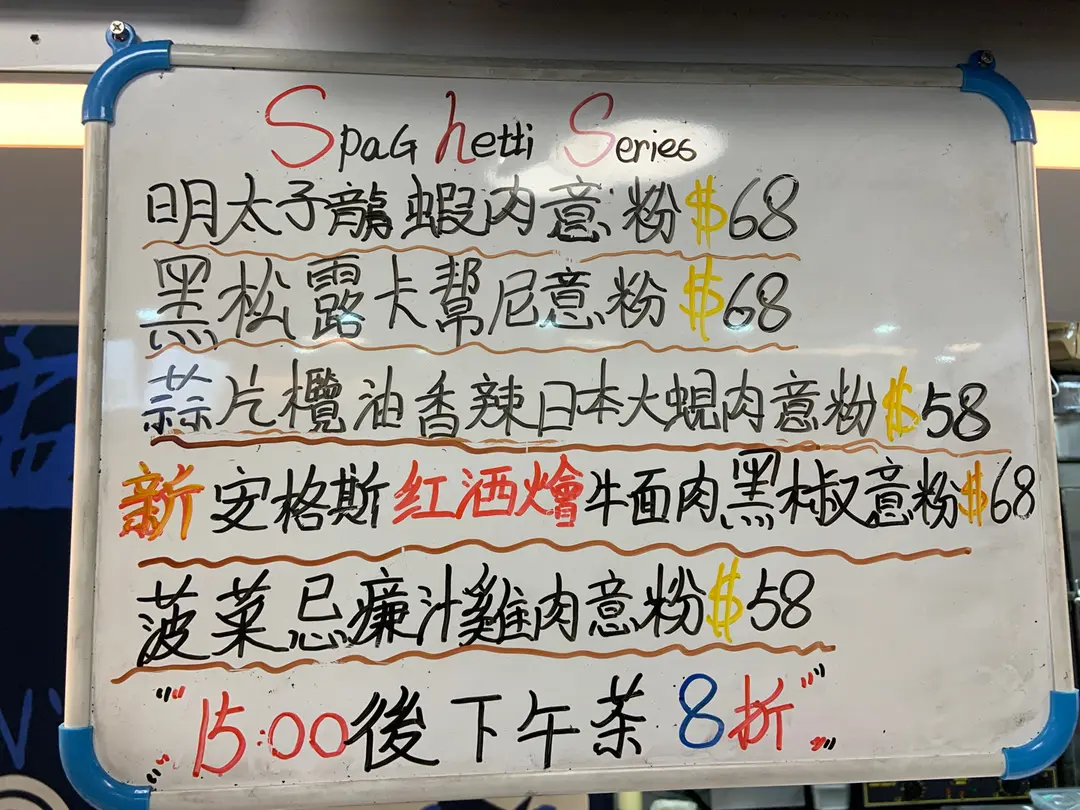 Spaghetti Series
明太子龍蝦肉意粉$68
黑松露卡幫尼意粉$68
蒜片欖油香辣日本大蜆肉意粉$58
新安格斯红酒燴牛面肉黑椒意粉$68
菠菜忌廉汁雞肉意粉$58
"15:00後下午茶8折"